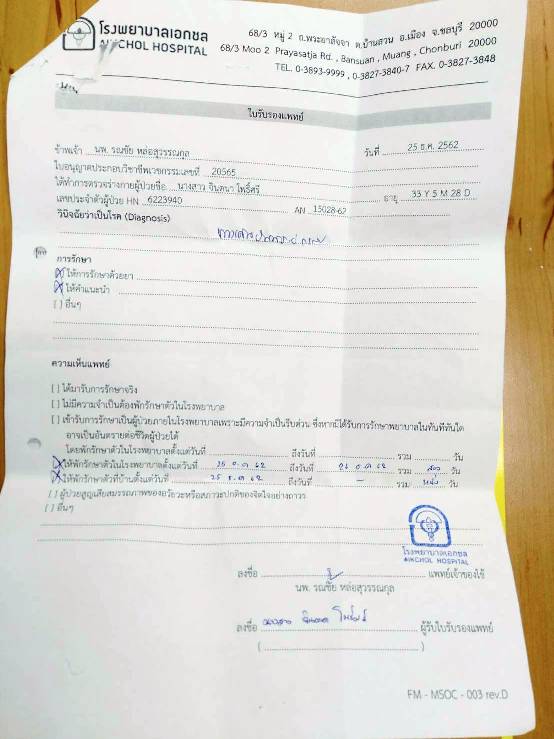 โรงพยาบาลเอกชล
AIKCHOL HOSPITAL
68/3 หมู่ 2 ถ.พระยาสัจจา ต.บ้านสวน อ.เมือง จ.ชลบุรี 20000
68/3 Moo 2 Prayasatja Rd., Bansuan, Muang, Chonburi 20000
TEL. 0-3893-9999, 0-3827-3840-7 FAX. 0-3827-3848
ใบรับรองแพทย์
ข้าพเจ้า นพ. รณชัย หล่อสุวรรณกุล วันที่ 25 ธ.ค. 2562
ใบอนุญาตประกอบวิชาชีพเวชกรรมเลขที่ 20565
ได้ทำการตรวจร่างกายผู้ป่วยชื่อ นางสาว จินตนา โพธิ์ศรี อายุ 33 Y 5 M 28 D
เลขประจำตัวผู้ป่วย HN 6223940 AN 15028-62
วินิจฉัยว่าเป็นโรค (Diagnosis)
การรักษา
[X] ให้การรักษาด้วยยา
[X] ให้คำแนะนำ
[ ] อื่นๆ
ความเห็นแพทย์
[ ] ได้มารับการรักษาจริง
[ ] ไม่มีความจำเป็นต้องพักรักษาตัวในโรงพยาบาล
[ ] เข้ารับการรักษาเป็นผู้ป่วยภายในโรงพยาบาลเพราะมีความจำเป็นรีบด่วน ซึ่งหากมิได้รับการรักษาพยาบาลในทันทีทันใด
อาจเป็นอันตรายต่อชีวิตผู้ป่วยได้
โดยพักรักษาตัวในโรงพยาบาลตั้งแต่วันที่ ถึงวันที่ รวม วัน
[X] ให้พักรักษาตัวในโรงพยาบาลตั้งแต่วันที่ 25 ธ.ค 62 ถึงวันที่ 26 ธ.ค 62 รวม สอง วัน
[X] ให้พักรักษาตัวที่บ้านตั้งแต่วันที่ ธ.ค 62 ถึงวันที่ - รวม หนึ่ง วัน
[ ] ผู้ป่วยสูญเสียสมรรถภาพของอวัยวะหรือสภาวะปกติของจิตใจอย่างถาวร
[ ] อื่นๆ
โรงพยาบาลเอกชล
AIKCHOL HOSPITAL
ลงชื่อ แพทย์เจ้าของไข้
นพ. รณชัย หล่อสุวรรณกุล
ลงชื่อ นางสาว จินตนา โพธิ์ศรี ผู้รับใบรับรองแพทย์
( )
FM - MSOC - 003 rev.D